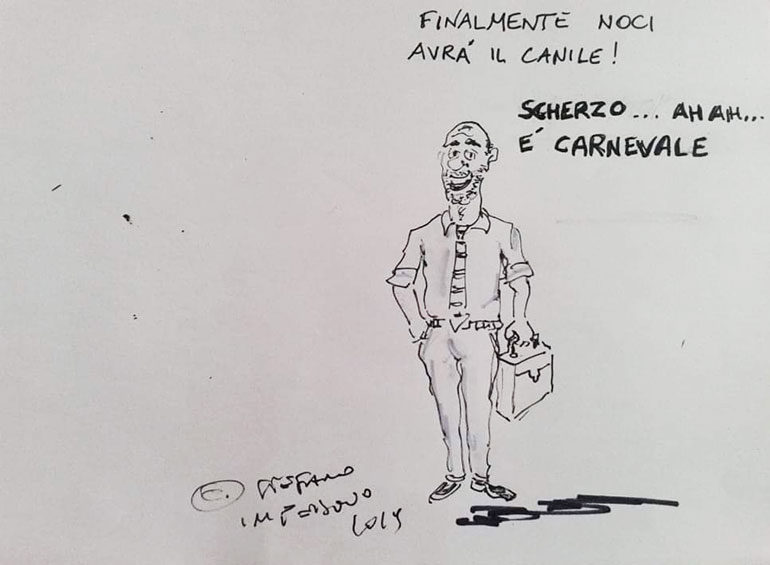 FINALMENTE NOCI
AVRÁ IL CANILE!
SCHERZO... AH AH...
É CARNEVALE
©. STEFANO
IMPERDUVO
2019